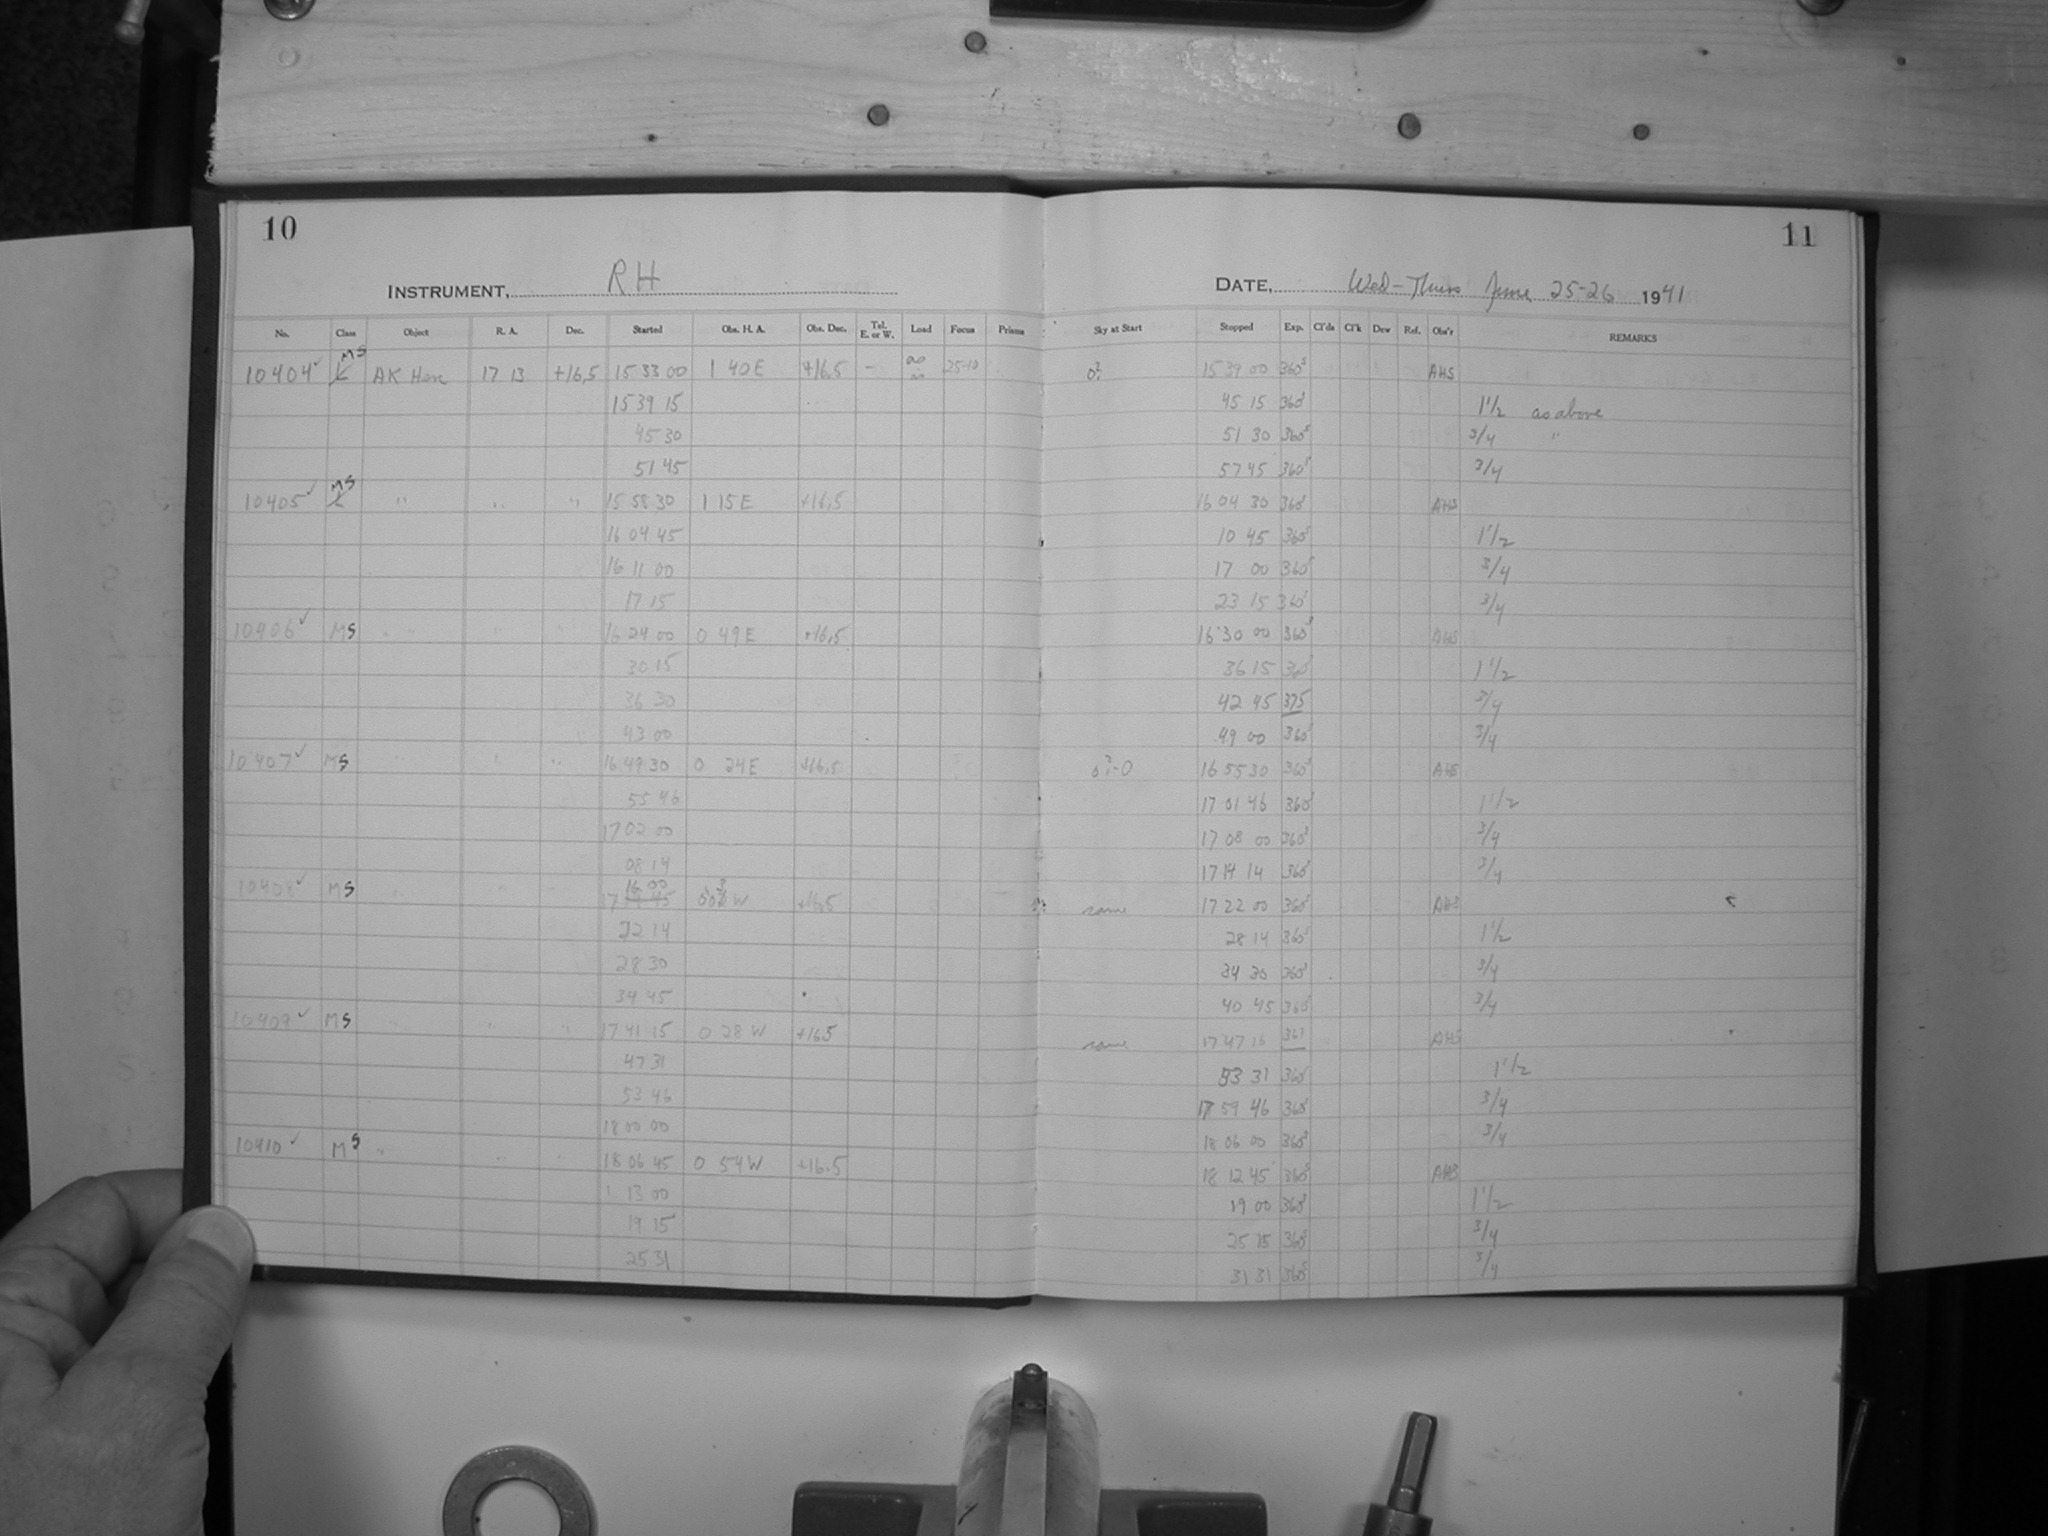 10 11
INSTRUMENT, RH DATE, Wed-Thurs June 25-26 1941
No. Class Object R. A. Dec. Started Obs. H. A. Obs. Dec. Tel. E. or W. Load Focus Prisms Sky at Start Stopped Exp. Cl'ds Cl'k Dew Ref. Obs'r REMARKS
10404 ✓ MS AK Herc 17 13 +16.5 15 33 00 1 40 E +16.5 - as is 25-10 0? 15 39 00 360s AHS
15 39 15 45 15 360s 1 1/2 as above
45 30 51 30 360s 3/4 "
51 45 57 45 360s 3/4
10405 ✓ MS " " " 15 58 30 1 15 E +16.5 16 04 30 360s AHS
16 04 45 10 45 360s 1 1/2
16 11 00 17 00 360s 3/4
17 15 23 15 360s 3/4
10406 ✓ MS " " " 16 24 00 0 49 E +16.5 16 30 00 360s AHS
30 15 36 15 360s 1 1/2
36 30 42 45 375 3/4
43 00 49 00 360s 3/4
10407 ✓ MS " " " 16 49 30 0 24 E +16.5 0?-0 16 55 30 360s AHS
55 46 17 01 46 360s 1 1/2
17 02 00 17 08 00 360s 3/4
08 14 17 14 14 360s 3/4
10408 ✓ MS " " 17 16 00 W +16.5 same 17 22 00 360s AHS
22 14 28 14 360s 1 1/2
28 30 34 30 360s 3/4
34 45 40 45 360s 3/4
10409 ✓ MS " " " 17 41 15 0 28 W +16.5 same 17 47 16 361 AHS
47 31 53 31 360s 1 1/2
53 46 17 59 46 360s 3/4
18 00 00 18 06 00 360s 3/4
10410 ✓ MS " " " 18 06 45 0 54 W +16.5 18 12 45 360s AHS
13 00 19 00 360s 1 1/2
19 15 25 15 360s 3/4
25 31 31 31 360s 3/4